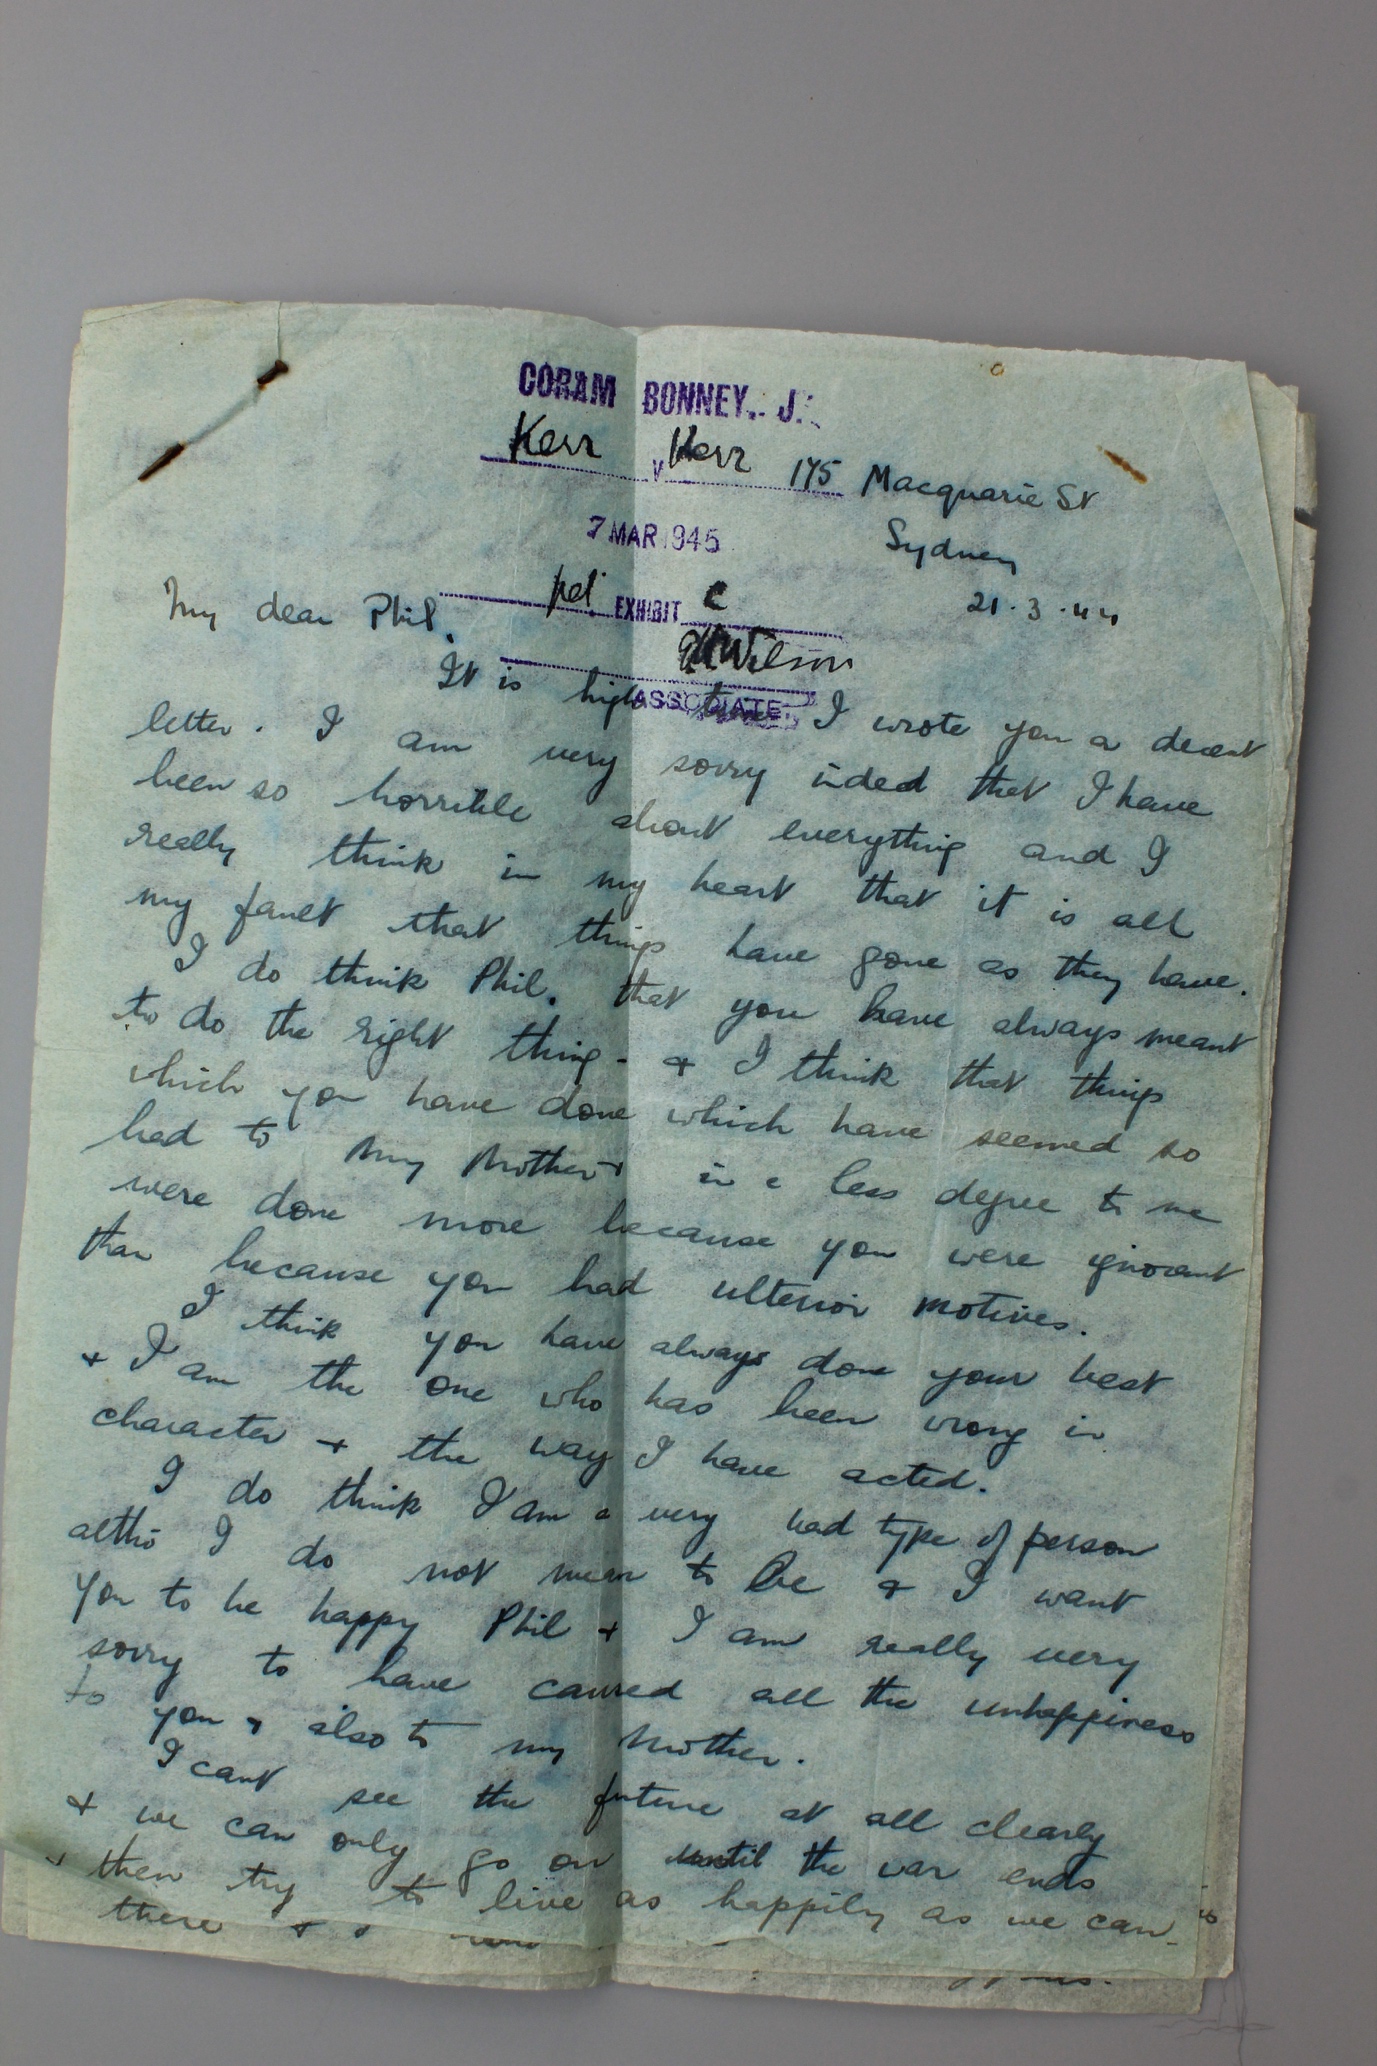 CORAM BONNEY. J.
Kerr v Kerr
175 Macquarie St
Sydney
7 MAR 1945
21.3.44
pet EXHIBIT C
My dear Phil,
Wilson
ASSOCIATE.
It is high time I wrote you a decent
letter. I am very sorry indeed that I have
been so horrible about everything and I
really think in my heart that it is all
my fault that things have gone as they have.
I do think Phil, that you have always meant
to do the right thing - & I think that things
which you have done which have seemed so
bad to my Mother & in a less degree to me
were done more because you were ignorant
than because you had ulterior motives.
I think you have always done your best
& I am the one who has been wrong in
character & the way I have acted.
I do think I am a very bad type of person
altho I do not mean to be & I want
you to be happy Phil & I am really very
sorry to have caused all the unhappiness
to you & also to my Mother.
I cant see the future at all clearly
& we can only go on until the war ends
& then try to live as happily as we can
there &